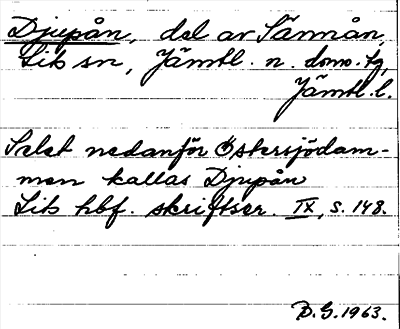 Djupån, del av Sännån,
Lit sn, Jämtl. n. doms. tg,
Jämtl. l.
Selet nedanför Östersjödam-
men kallas Djupån
Lits hbf. skriftser. IX, s. 148.
D. G. 1963.